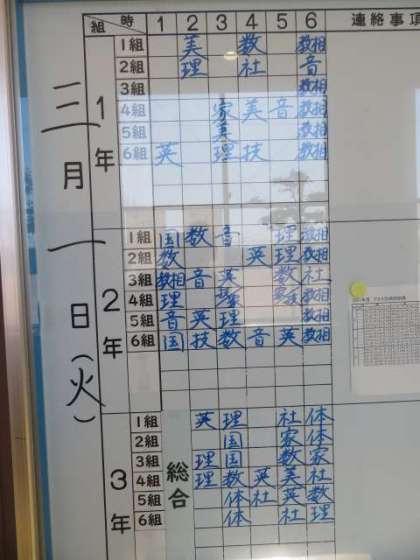 組 時 1 2 3 4 5 6 連絡事項
三月一日(火)
1年
1組 美 数 教相
2組 理 社 音
3組 教相
4組 家 美 音 教相
5組 美 教相
6組 英 理 技 教相
2年
1組 国 数 音 理 教相
2組 数 英 理 教相
3組 教相 音 英 数 社
4組 理 教相
5組 音 英 理 教相
6組 国 技 数 音 英 教相
3年
総合
1組 英 理 社 体
2組 国 家 体
3組 理 国 数 家
4組 理 数 英 美 社
5組 体 社 英 数
6組 体 社 理